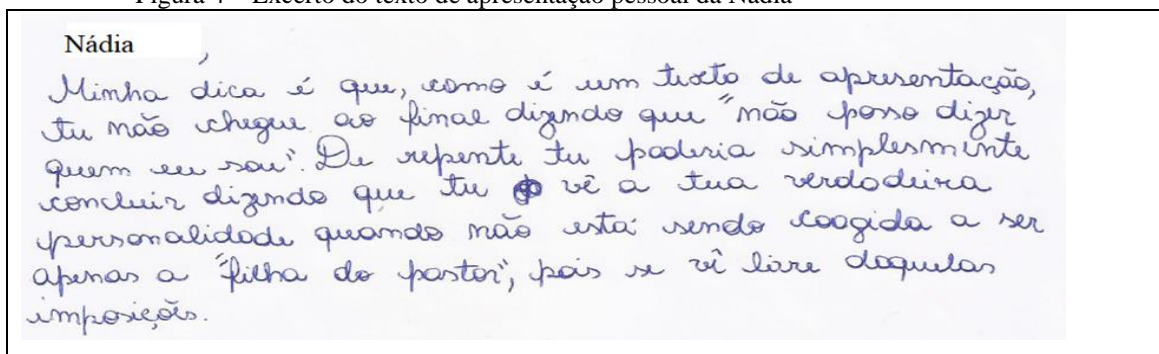 Figura 4 – Excerto do texto de apresentação pessoal da Nádia
Nádia ,
Minha dica é que, como é um texto de apresentação,
tu não chegue ao final dizendo que "não posso dizer
quem eu sou". De repente tu poderia simplesmente
concluir dizendo que tu vê a tua verdadeira
personalidade quando não está sendo coagida a ser
apenas a "filha do pastor", pois se vê livre daquelas
imposições.